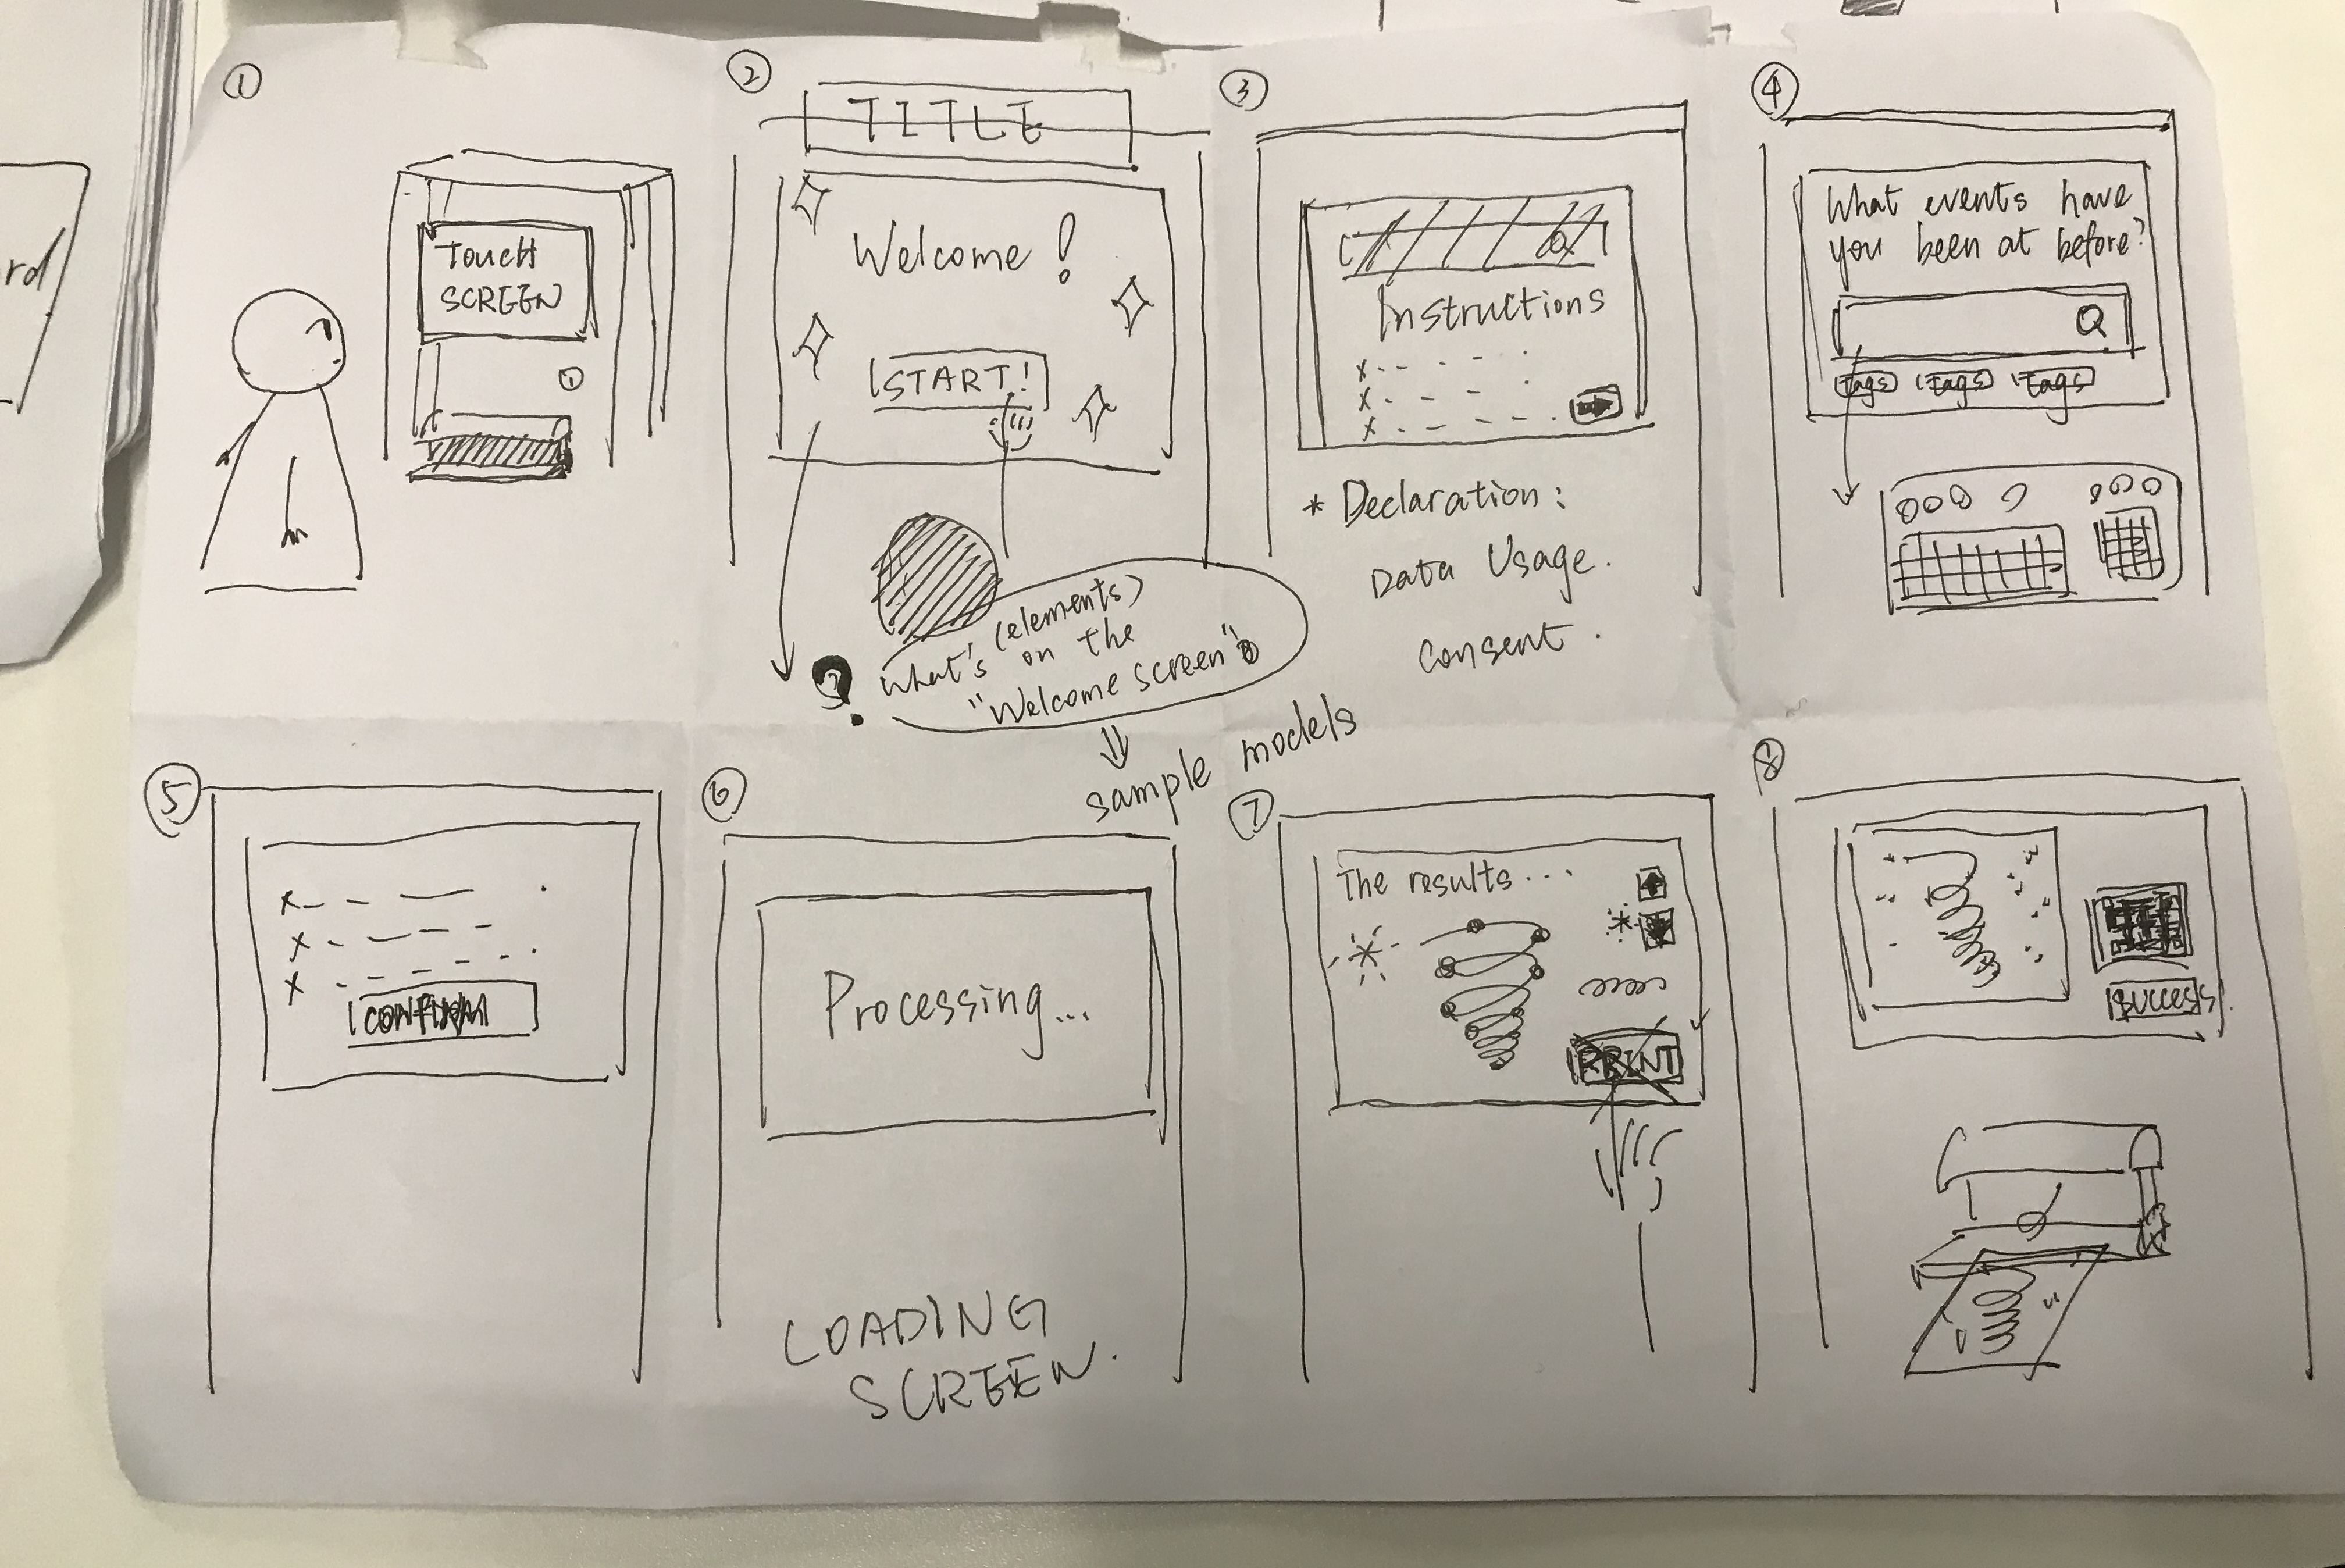 rd
①
TOUCH
SCREEN
②
TITLE
Welcome!
START!
?
What's (elements)
on the
"Welcome screen"?
⇓
sample models
③
Instructions
x
x
x
* Declaration:
Data Usage.
Consent.
④
What events have
you been at before?
Tags Tags Tags
⑤
x
x
x
CONFIRM
⑥
Processing...
LOADING
SCREEN.
⑦
The results...
PRINT
⑧
SUCCESS